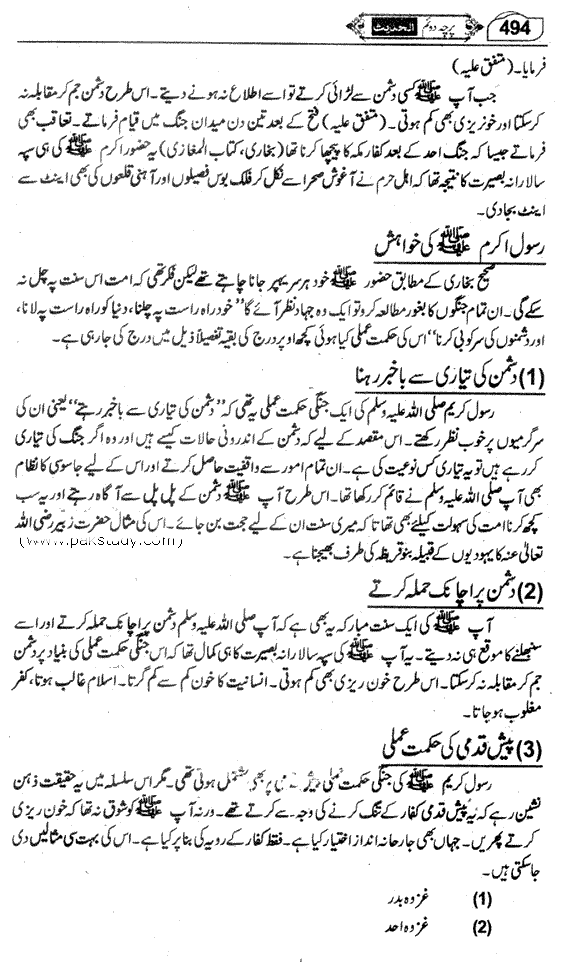 494 الحدیث پرچہ دوئم
فرمایا۔ (متفق علیہ)
جب آپ ﷺ کسی دشمن سے لڑائی کرتے تو اسے اطلاع نہ ہونے دیتے۔ اس طرح دشمن جم کر مقابلہ نہ
کر سکتا اور خونریزی بھی کم ہوتی۔ (متفق علیہ) فتح کے بعد تین دن میدان جنگ میں قیام فرماتے۔ تعاقب بھی
فرماتے جیسا کہ جنگ احد کے بعد کفار مکہ کا پیچھا کرنا تھا (بخاری، کتاب المغازی) یہ حضور اکرم ﷺ کی ہی سپہ
سالارانہ بصیرت کا نتیجہ تھا کہ اہل حرم نے آغوش صحرا سے نکل کر فلک بوس فصیلوں اور آہنی قلعوں کی بھی اینٹ سے
اینٹ بجا دی۔
رسول اکرم ﷺ کی خواہش
صحیح بخاری کے مطابق حضور ﷺ خود ہر سریہ پر جانا چاہتے تھے لیکن فکر تھی کہ امت اس سنت پہ چل نہ
سکے گی۔ ان تمام جنگوں کا بغور مطالعہ کرو تو ایک وہ جہاد نظر آئے گا "خود راہ راست پہ چلنا، دنیا کو راہ راست پہ لانا،
اور دشمنوں کی سرکوبی کرنا" اس کی حکمت عملی کیا ہوئی کچھ اوپر درج کی بقیہ تفصیلاً ذیل میں درج کی جا رہی ہے۔
(1) دشمن کی تیاری سے باخبر رہنا
رسول کریم صلی اللہ علیہ وسلم کی ایک جنگی حکمت عملی یہ تھی کہ "دشمن کی تیاری سے باخبر رہتے" یعنی ان کی
سرگرمیوں پر خوب نظر رکھتے۔ اس مقصد کے لیے کہ دشمن کے اندرونی حالات کیسے ہیں اور وہ اگر جنگ کی تیاری
کر رہے ہیں تو یہ تیاری کس نوعیت کی ہے۔ ان تمام امور سے واقفیت حاصل کرتے اور اس کے لیے جاسوسی کا نظام
بھی آپ صلی اللہ علیہ وسلم نے قائم کر رکھا تھا۔ اس طرح آپ ﷺ دشمن کے پل پل سے آگاہ رہتے اور یہ سب
کچھ کرنا امت کی سہولت کیلئے بھی تھا تا کہ میری سنت ان کے لیے حجت بن جائے۔ اس کی مثال حضرت زبیر رضی اللہ
(www.pakstudy.com)
تعالیٰ عنہ کا یہودیوں کے قبیلہ بنو قریظہ کی طرف بھیجنا ہے۔
(2) دشمن پر اچانک حملہ کرتے
آپ ﷺ کی ایک سنت مبارکہ یہ بھی ہے کہ آپ صلی اللہ علیہ وسلم دشمن پر اچانک حملہ کرتے اور اسے
سنبھلنے کا موقع ہی نہ دیتے۔ یہ آپ ﷺ کی سپہ سالارانہ بصیرت کا ہی کمال تھا کہ اس جنگی حکمت عملی کی بنیاد پر دشمن
جم کر مقابلہ نہ کر سکتا۔ اس طرح خون ریزی بھی کم ہوتی۔ انسانیت کا خون کم سے کم گرتا۔ اسلام غالب ہوتا، کفر
مغلوب ہو جاتا۔
(3) پیش قدمی کی حکمت عملی
رسول کریم ﷺ کی جنگی حکمت عملی پر بھی مشتمل ہوتی تھی۔ مگر اس سلسلہ میں یہ حقیقت ذہن
نشین رہے کہ یہ پیش قدمی کفار کے تنگ کرنے کی وجہ سے کرتے تھے۔ ورنہ آپ ﷺ کو شوق نہ تھا کہ خون ریزی
کرتے پھریں۔ جہاں بھی جارحانہ انداز اختیار کیا ہے۔ فقط کفار کے رویہ کی بنا پر کیا ہے۔ اس کی بہت سی مثالیں دی
جا سکتی ہیں۔
(1) غزوہ بدر
(2) غزوہ احد